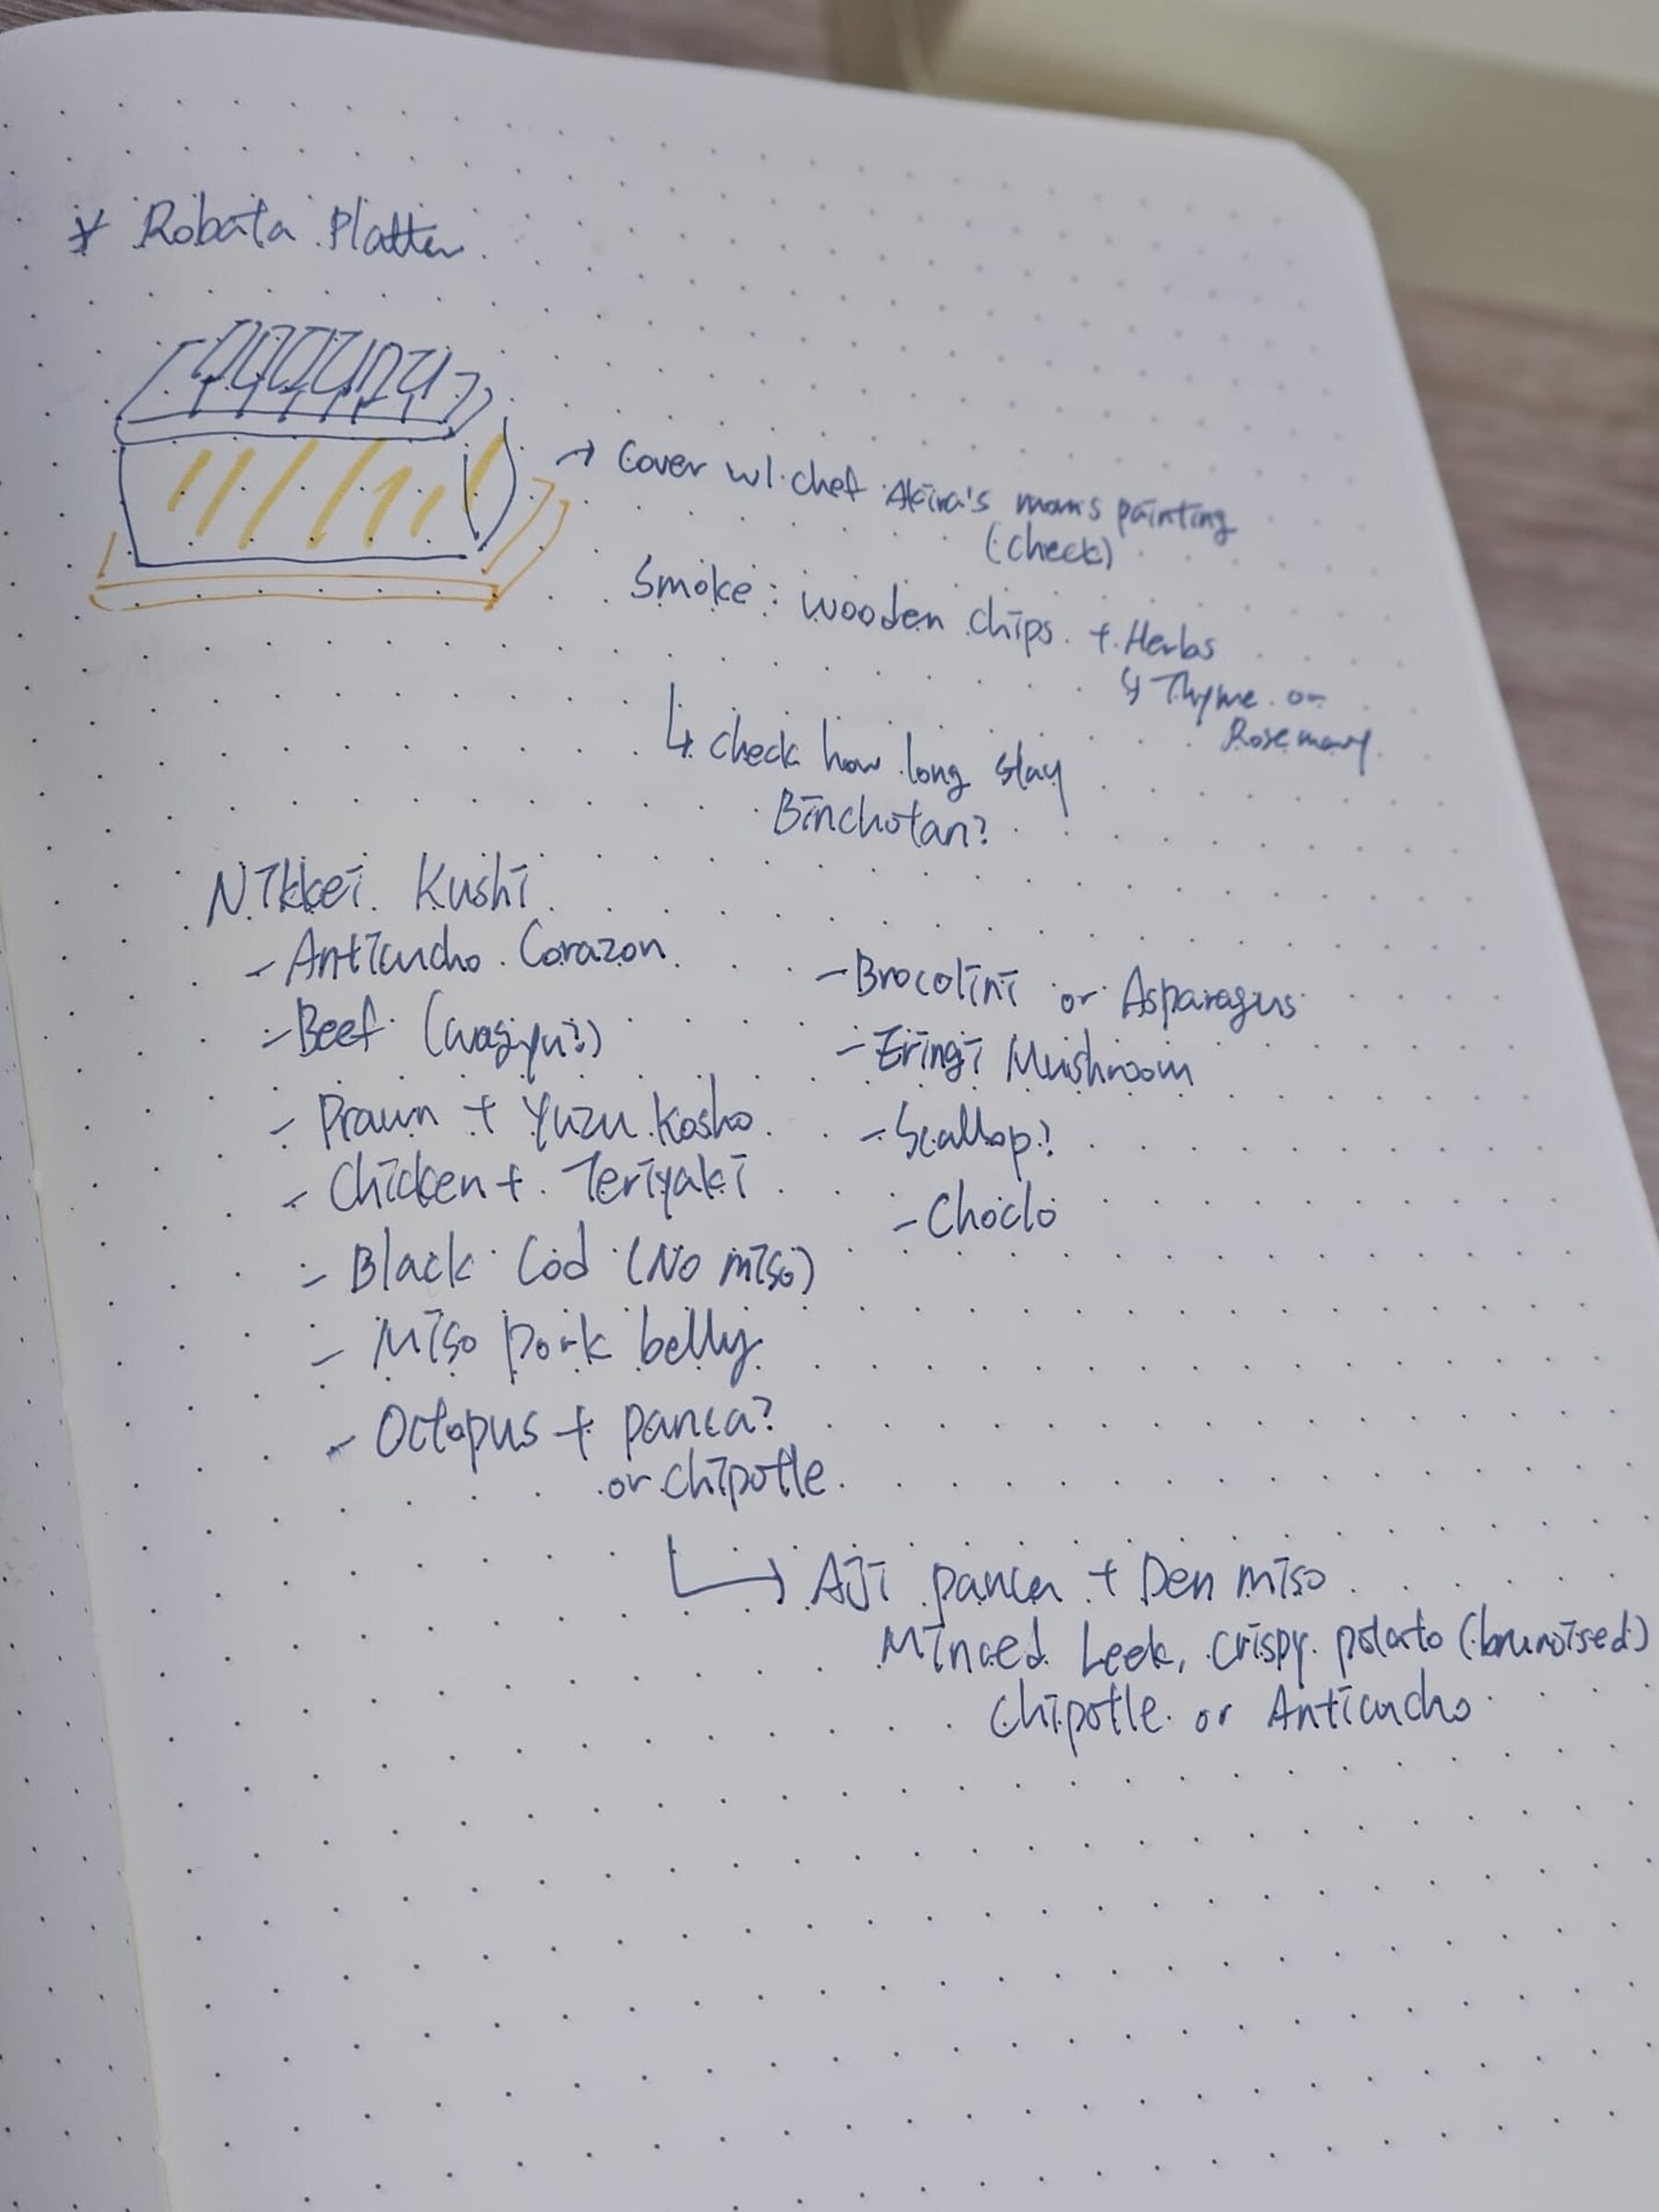 * Robata Platter
→ Cover w/ chef Akira's mom's painting
(check)
Smoke: wooden chips + Herbs
↳ Thyme or
Rosemary
↳ check how long stay
Binchotan?
Nikkei Kushi
- Anticucho Corazon
- Beef (wagyu?)
- Prawn + Yuzu Kosho
- Chicken + Teriyaki
- Black Cod (No miso)
- Miso pork belly
- Octopus + panca?
or chipotle
- Brocolini or Asparagus
- Eringi Mushroom
- Scallop?
- Choclo
→ Aji panca + Den miso
Minced Leek, crispy potato (brunoised)
Chipotle or Anticucho